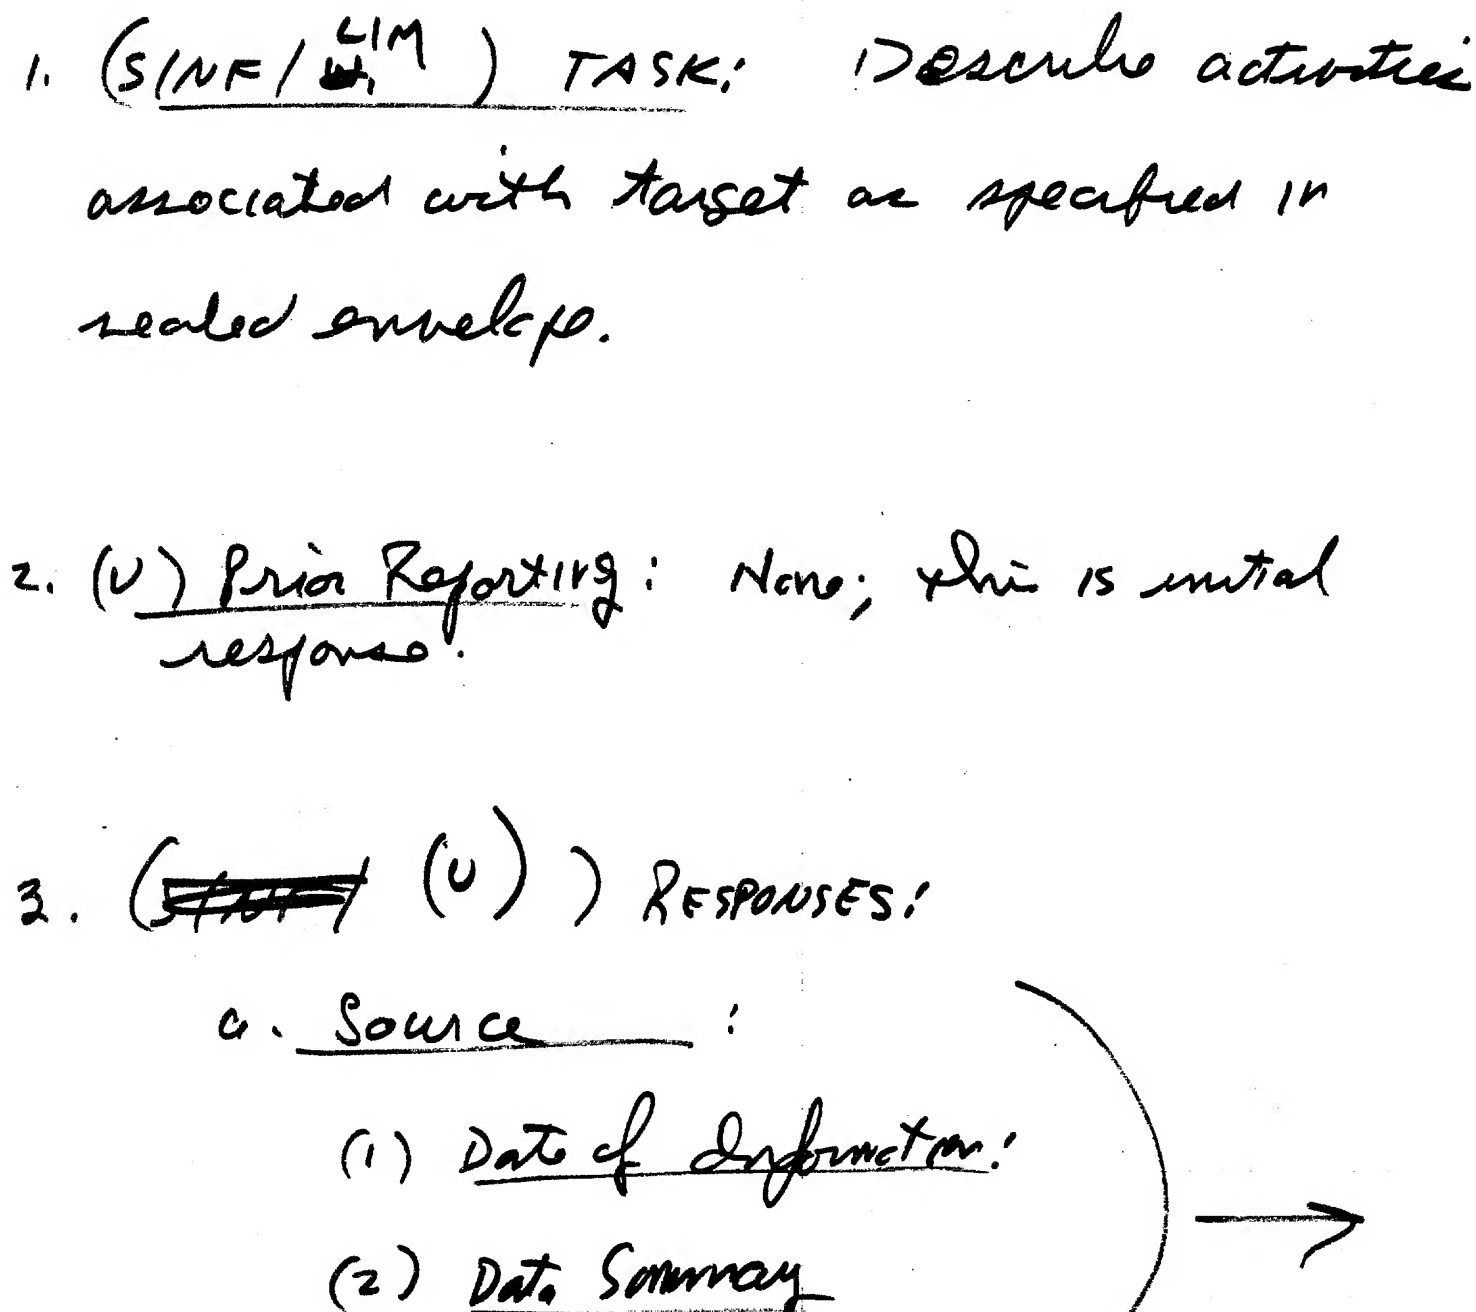 1. (S/NF/LIM) TASK: Describe activities
associated with target as specified in
sealed envelope.
2. (U) Prior Reporting: None; this is initial
response.
3. ( (U) ) RESPONSES:
a. Source :
(1) Date of Information:
(2) Data Summary